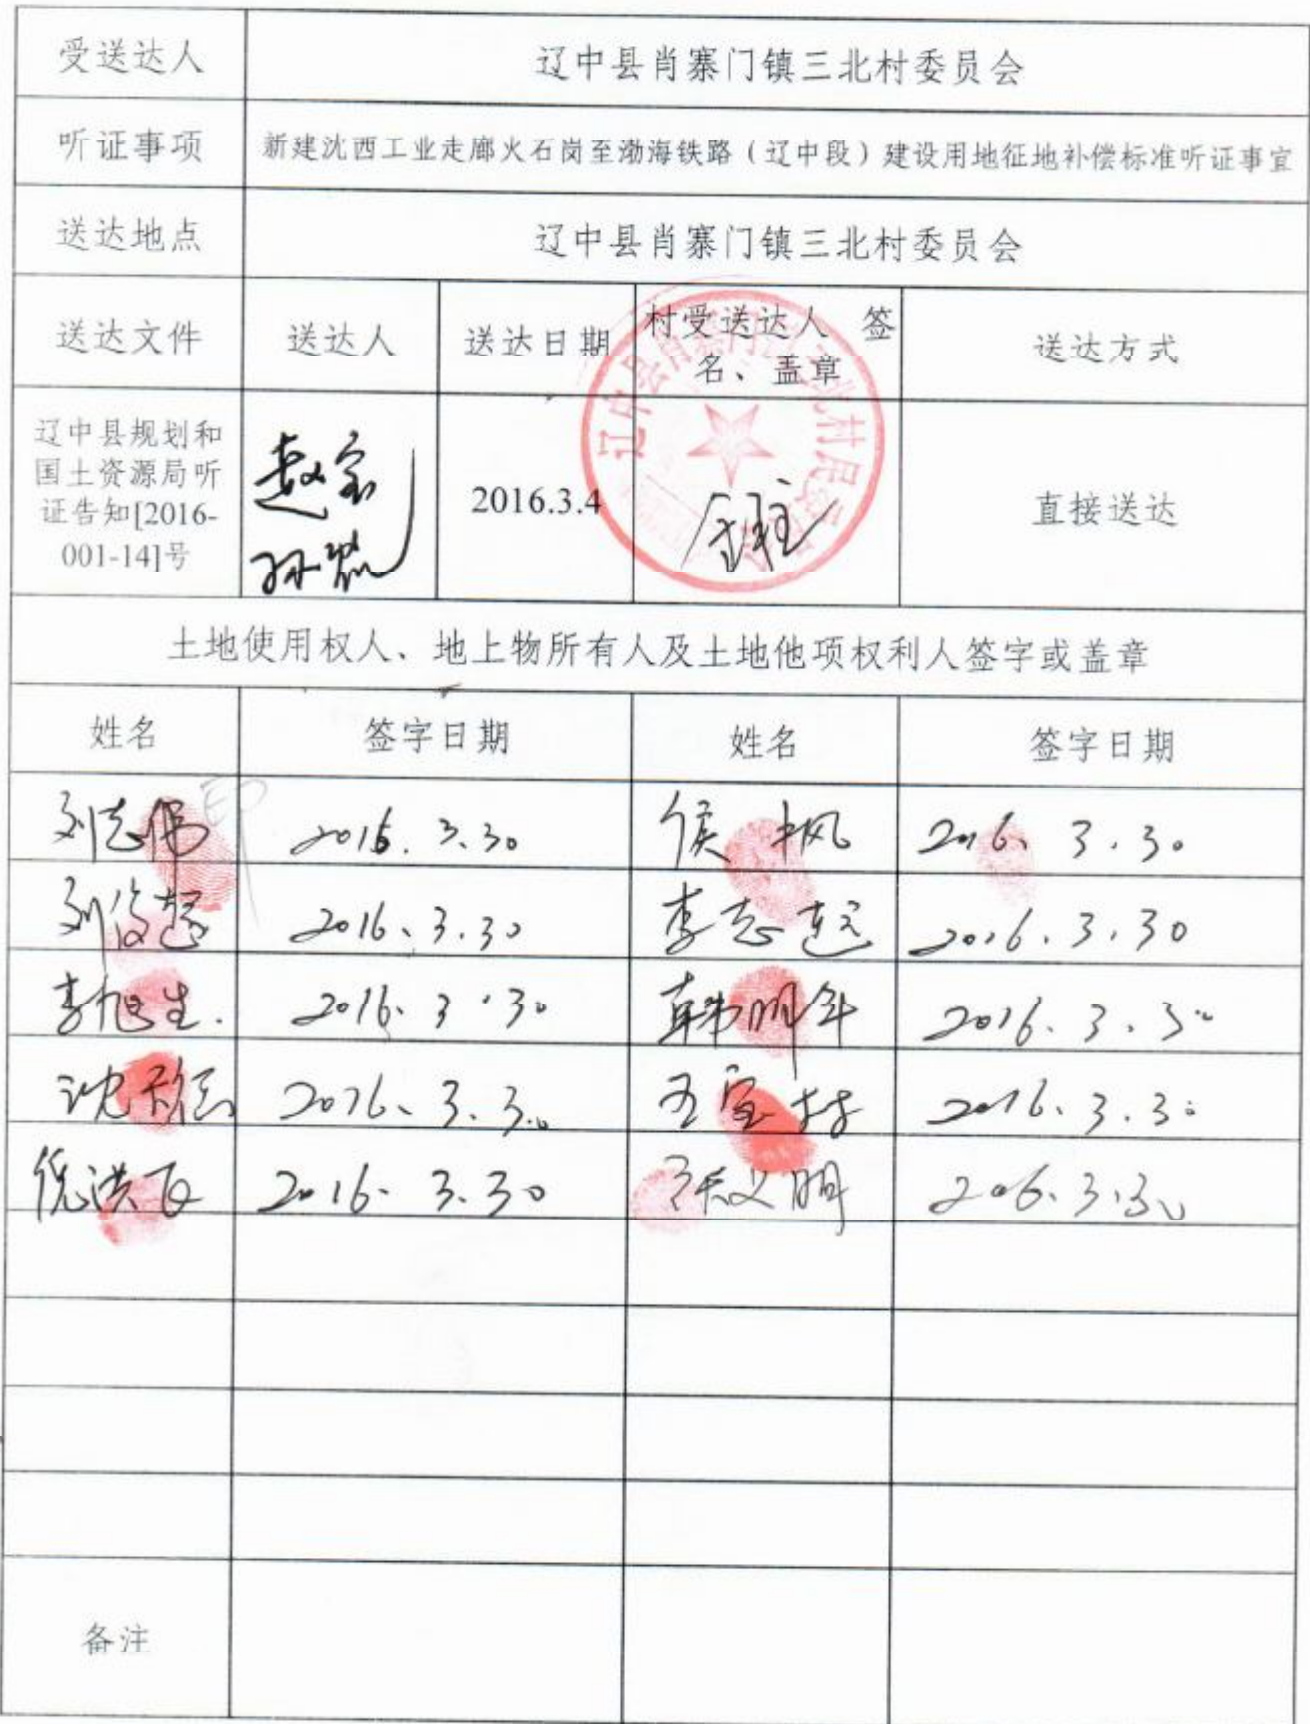 受送达人 辽中县肖寨门镇三北村委员会
听证事项 新建沈西工业走廊火石岗至渤海铁路（辽中段）建设用地征地补偿标准听证事宜
送达地点 辽中县肖寨门镇三北村委员会
送达文件 送达人 送达日期 村受送达人 签名、盖章 送达方式
辽中县规划和
国土资源局听
证告知[2016-
001-14]号
2016.3.4
直接送达
土地使用权人、地上物所有人及土地他项权利人签字或盖章
姓名 签字日期 姓名 签字日期
刘志伟 2016.3.30 侯 2016.3.30
刘俊超 2016.3.30 李志远 2016.3.30
李旭生. 2016.3.30 韩明年 2016.3.30
沈 2016.3.30 王宝林 2016.3.30
倪洪飞 2016.3.30 张文明 206.3.30
备注